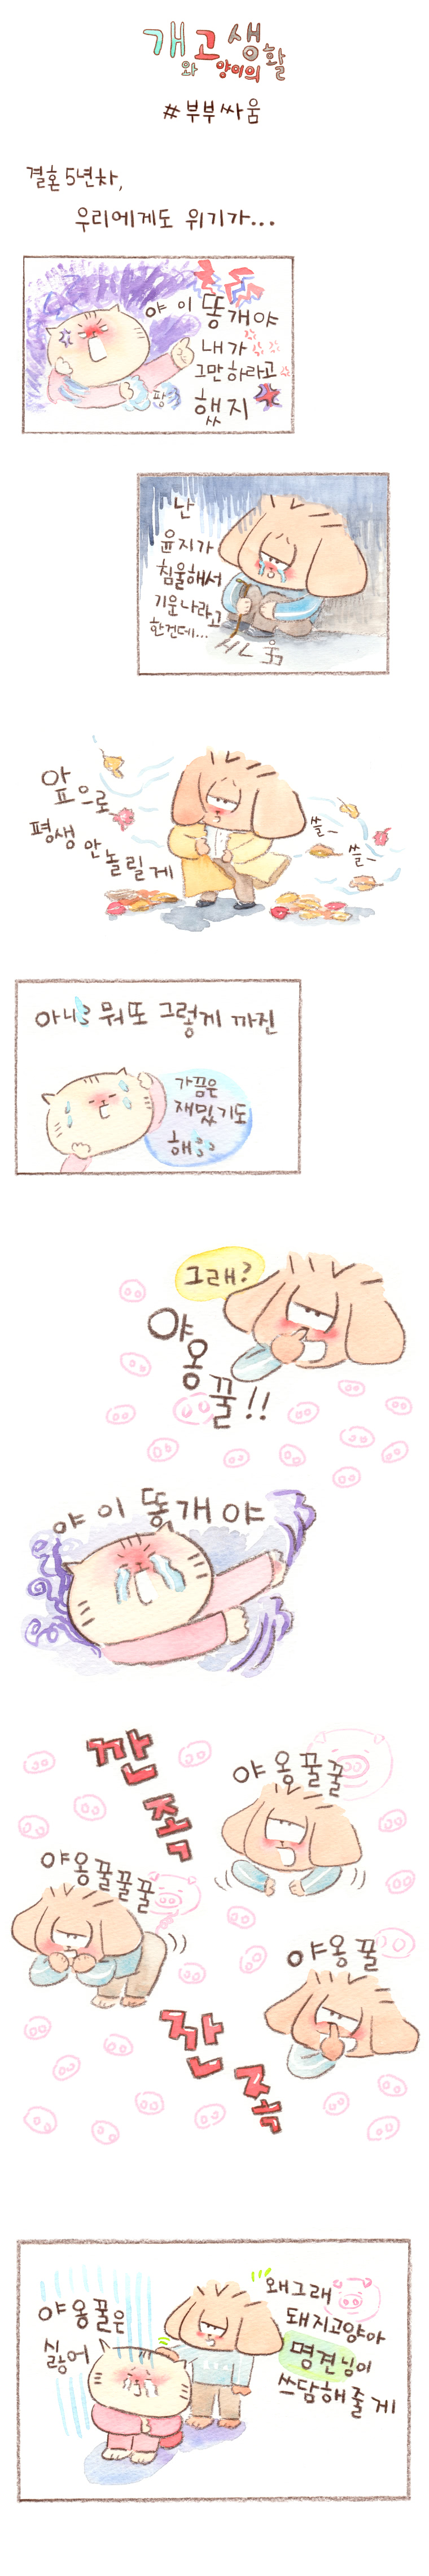 개와 고양이의 생활
#부부싸움
결혼 5년차,
우리에게도 위기가...
야 이 똥개야
내가
그만하라고
했지
팡
난
윤지가
침울해서
기운나라고
한건데...
앞으로
평생 안 놀릴게
쓸~
쓸~
아니 뭐또 그렇게 까진
가끔은
재밌기도
해;;
그래?
야
옹
꿀!!
야 이 똥개야
깐
족
야옹꿀꿀
야옹꿀꿀꿀
야옹꿀
깐
족
야옹꿀은
싫어
왜그래
돼지고양아
명견님이
쓰담해줄게